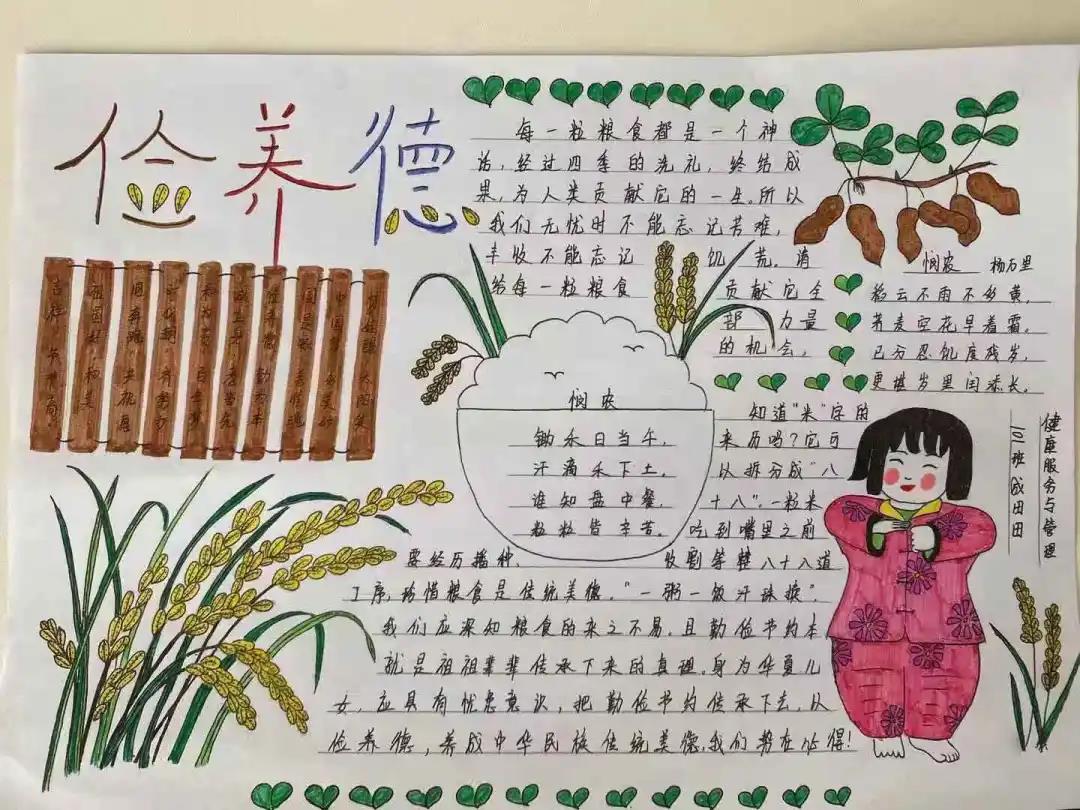 俭养德
每一粒粮食都是一个神
话,经过四季的洗礼,终结成
果,为人类贡献它的一生。所以
我们无忧时不能忘记苦难,
丰收不能忘记饥荒。请
给每一粒粮食贡献它全
部力量
的机会。
悯农 杨万里
稻云不雨不多黄,
荞麦空花早着霜。
已分忍饥度残岁,
更堪岁里闰添长。
悯农
锄禾日当午,
汗滴禾下土。
谁知盘中餐,
粒粒皆辛苦。
知道"米"字的
来历吗?它可
以拆分成"八
十八",一粒米
吃到嘴里之前
要经历播种、收割等整八十八道
工序,珍惜粮食是传统美德。"一粥一饭汗珠换"。
我们应深知粮食的来之不易。且勤俭节约本
就是祖祖辈辈传承下来的真理。身为华夏儿
女,应具有忧患意识,把勤俭节约传承下去,以
俭养德,养成中华民族传统美德,我们势在必得!
健康服务与管理
101班 成田田